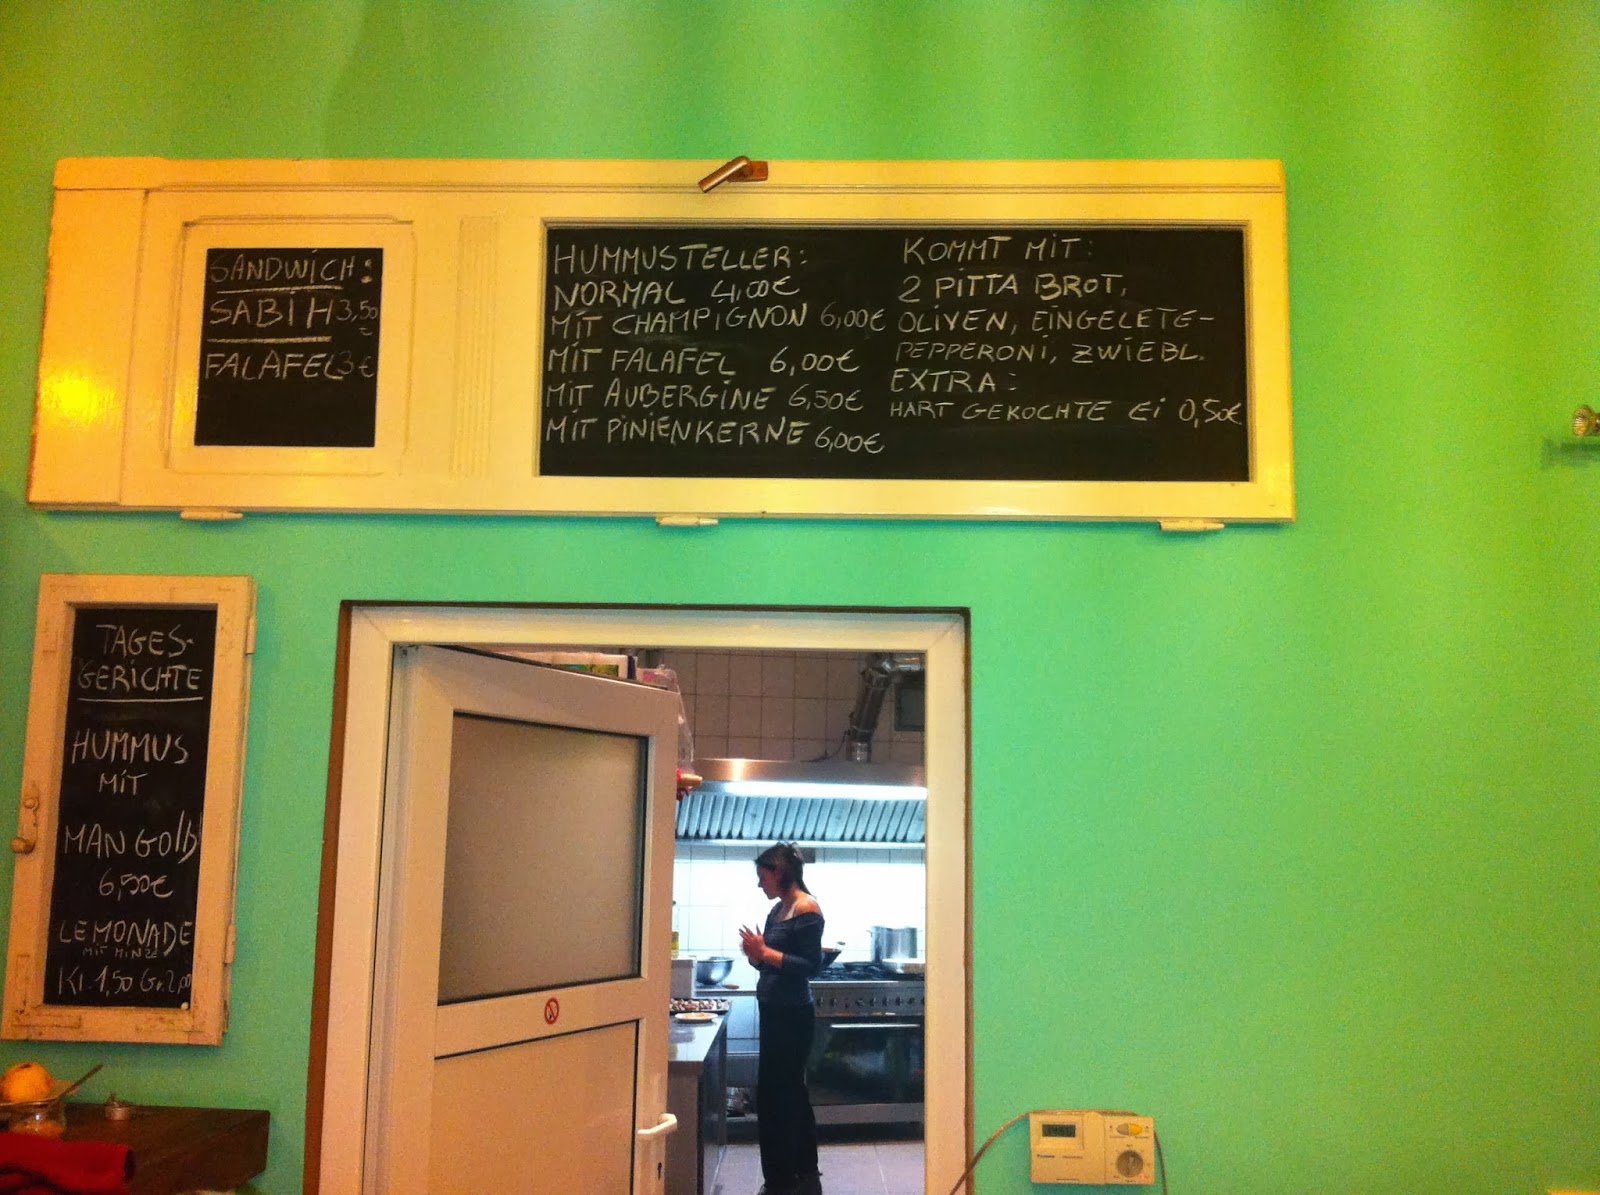 SANDWICH:
SABIH 3,50
FALAFEL 3€
HUMMUSTELLER:
NORMAL 4,00€
MIT CHAMPIGNON 6,00€
MIT FALAFEL 6,00€
MIT AUBERGINE 6,50€
MIT PINIENKERNE 6,00€
KOMMT MIT:
2 PITTA BROT,
OLIVEN, EINGELETE-
PEPPERONI, ZWIEBL.
EXTRA:
HART GEKOCHTE Ei 0,50€
TAGES-
GERICHTE
HUMMUS
MIT
MANGOlD
6,50€
LEMONADE
MIT MINZE
Kl. 1,50 Gr. 2,00